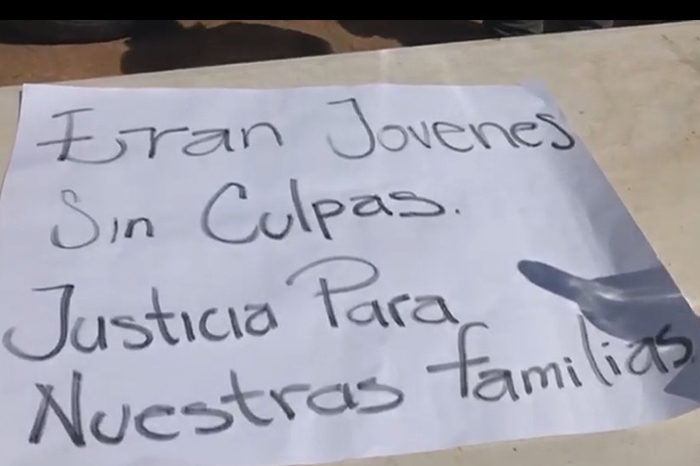 Eran Jovenes
Sin Culpas.
Justicia Para
Nuestras familias.